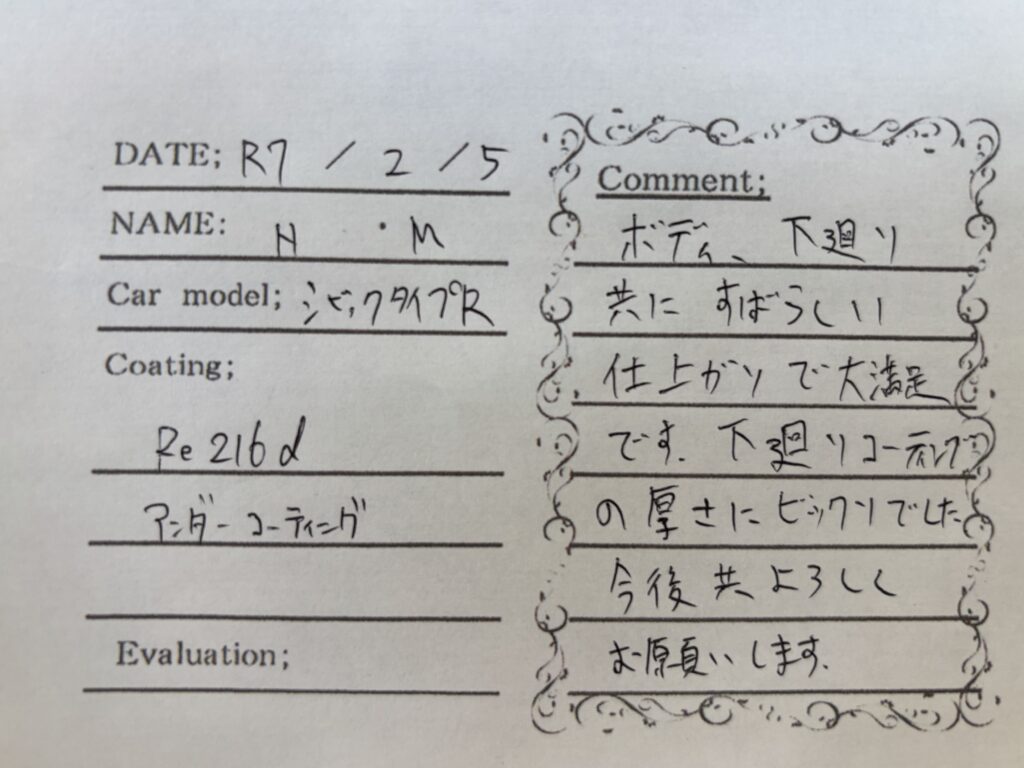 DATE; R7 / 2 / 5
NAME: H ・M
Car model; シビックタイプR
Coating;
Re 216d
アンダーコーティング
Evaluation;
Comment;
ボディ、下廻り
共に すばらしい
仕上がりで大満足
です。下廻りコーティング
の厚さにビックリでした
今後共よろしく
お願いします。